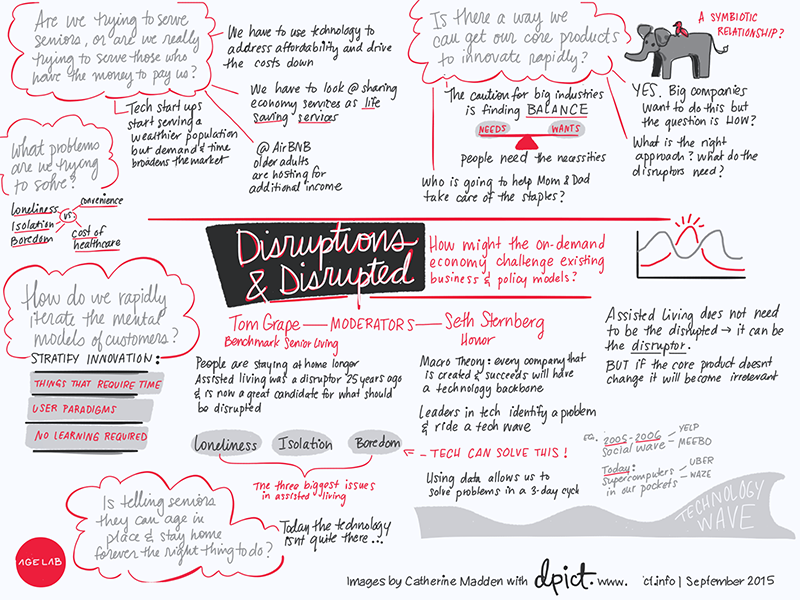 Are we trying to serve
seniors, or are we really
trying to serve those who
have the money to pay us?
Tech start ups
start serving a
wealthier population
but demand & time
broadens the market
We have to use technology to
address affordability and drive
the costs down
We have to look @ sharing
economy services as life
saving services
@ AirBNB
older adults
are hosting for
additional income
Is there a way we
can get our core products
to innovate rapidly?
A SYMBIOTIC
RELATIONSHIP?
The caution for big industries
is finding BALANCE
NEEDS WANTS
people need the necessities
Who is going to help Mom & Dad
take care of the staples?
YES. Big companies
want to do this but
the question is HOW?
What is the right
approach? What do the
disruptors need?
What problems
are we trying
to solve?
Loneliness
Isolation
Boredom
vs.
convenience
cost of
healthcare
Disruptions
& Disrupted
How might the on-demand
economy challenge existing
business & policy models?
Tom Grape — MODERATORS — Seth Sternberg
Benchmark Senior Living
Honor
How do we rapidly
iterate the mental
models of customers?
STRATIFY INNOVATION:
THINGS THAT REQUIRE TIME
USER PARADIGMS
NO LEARNING REQUIRED
People are staying at home longer
Assisted living was a disruptor 25 years ago
& is now a great candidate for what should
be disrupted
Loneliness Isolation Boredom
The three biggest issues
in assisted living
← - TECH CAN SOLVE THIS!
Macro Theory: every company that
is created & succeeds will have
a technology backbone
Leaders in tech identify a problem
& ride a tech wave
Using data allows us to
solve problems in a 3-day cycle
Assisted Living does not need
to be the disrupted → it can be
the disruptor.
BUT if the core product doesnt
change it will become irrelevant
eg. 2005-2006
Social wave
YELP
MEEBO
Today:
Supercomputers
in our pockets
UBER
WAZE
TECHNOLOGY
WAVE
Is telling seniors
they can age in
place & stay home
forever the right thing to do?
Today the technology
isnt quite there...
AGELAB
Images by Catherine Madden with dpict. www. ct.info | September 2015